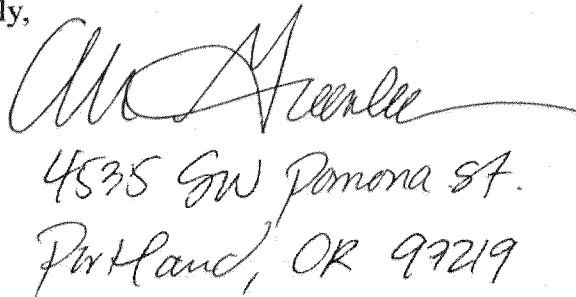 ly,
Greenlee
4535 SW Pomona St.
Portland, OR 97219